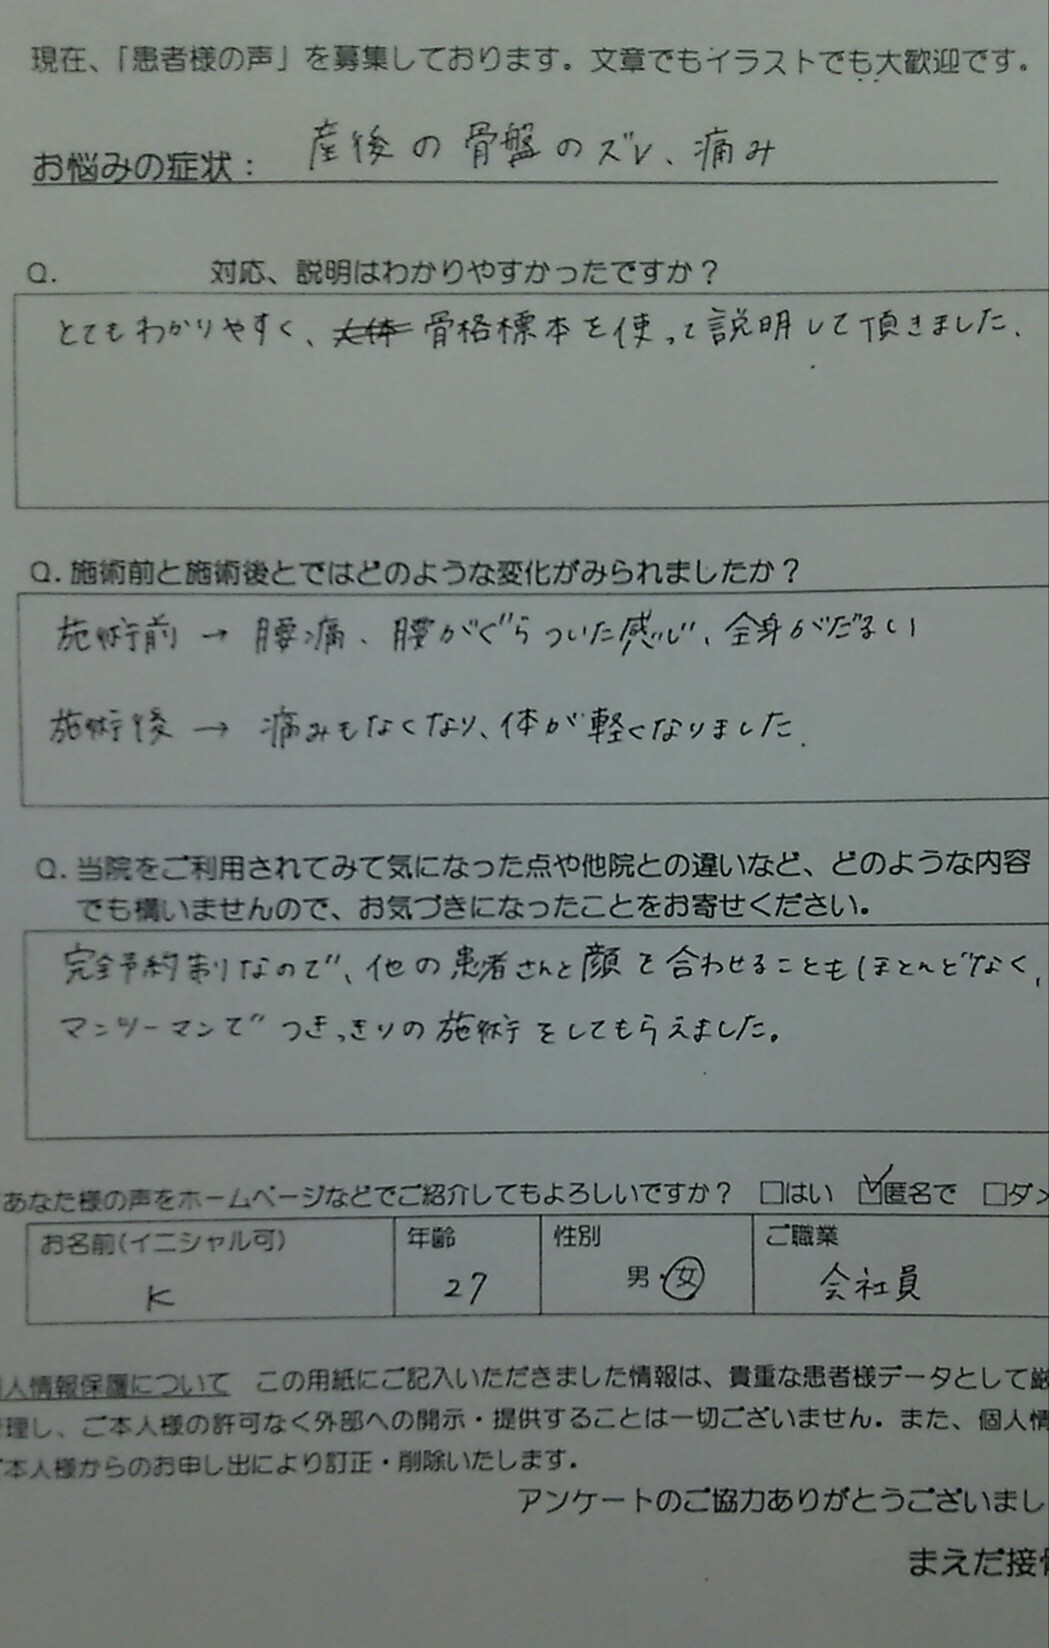 現在、「患者様の声」を募集しております。文章でもイラストでも大歓迎です。
お悩みの症状： 産後の骨盤のズレ、痛み
Q. 対応、説明はわかりやすかったですか？
とてもわかりやすく、人体骨格標本を使って説明して頂きました.
Q. 施術前と施術後とではどのような変化がみられましたか？
施術前 → 腰痛、腰がぐらついた感じ、全身がだるい
施術後 → 痛みもなくなり、体が軽くなりました.
Q. 当院をご利用されてみて気になった点や他院との違いなど、どのような内容
でも構いませんので、お気づきになったことをお寄せください。
完全予約制なので、他の患者さんと顔を合わせることもほとんどなく、
マンツーマンでつきっきりの施術をしてもらえました。
あなた様の声をホームページなどでご紹介してもよろしいですか？ □はい ☑匿名で □ダメ
お名前（イニシャル可） 年齢 性別 ご職業
K 27 男・女 会社員
人情報保護について この用紙にご記入いただきました情報は、貴重な患者様データとして厳
理し、ご本人様の許可なく外部への開示・提供することは一切ございません。また、個人情
本人様からのお申し出により訂正・削除いたします。
アンケートのご協力ありがとうございまし
まえだ接骨